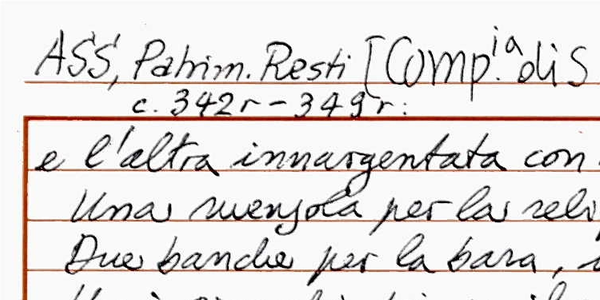 ASS, Patrim. Resti [Comp.ia di S
c. 342r - 349r:
e l'altra innargentata con
Una mensola per la reli
Due banche per la bara,